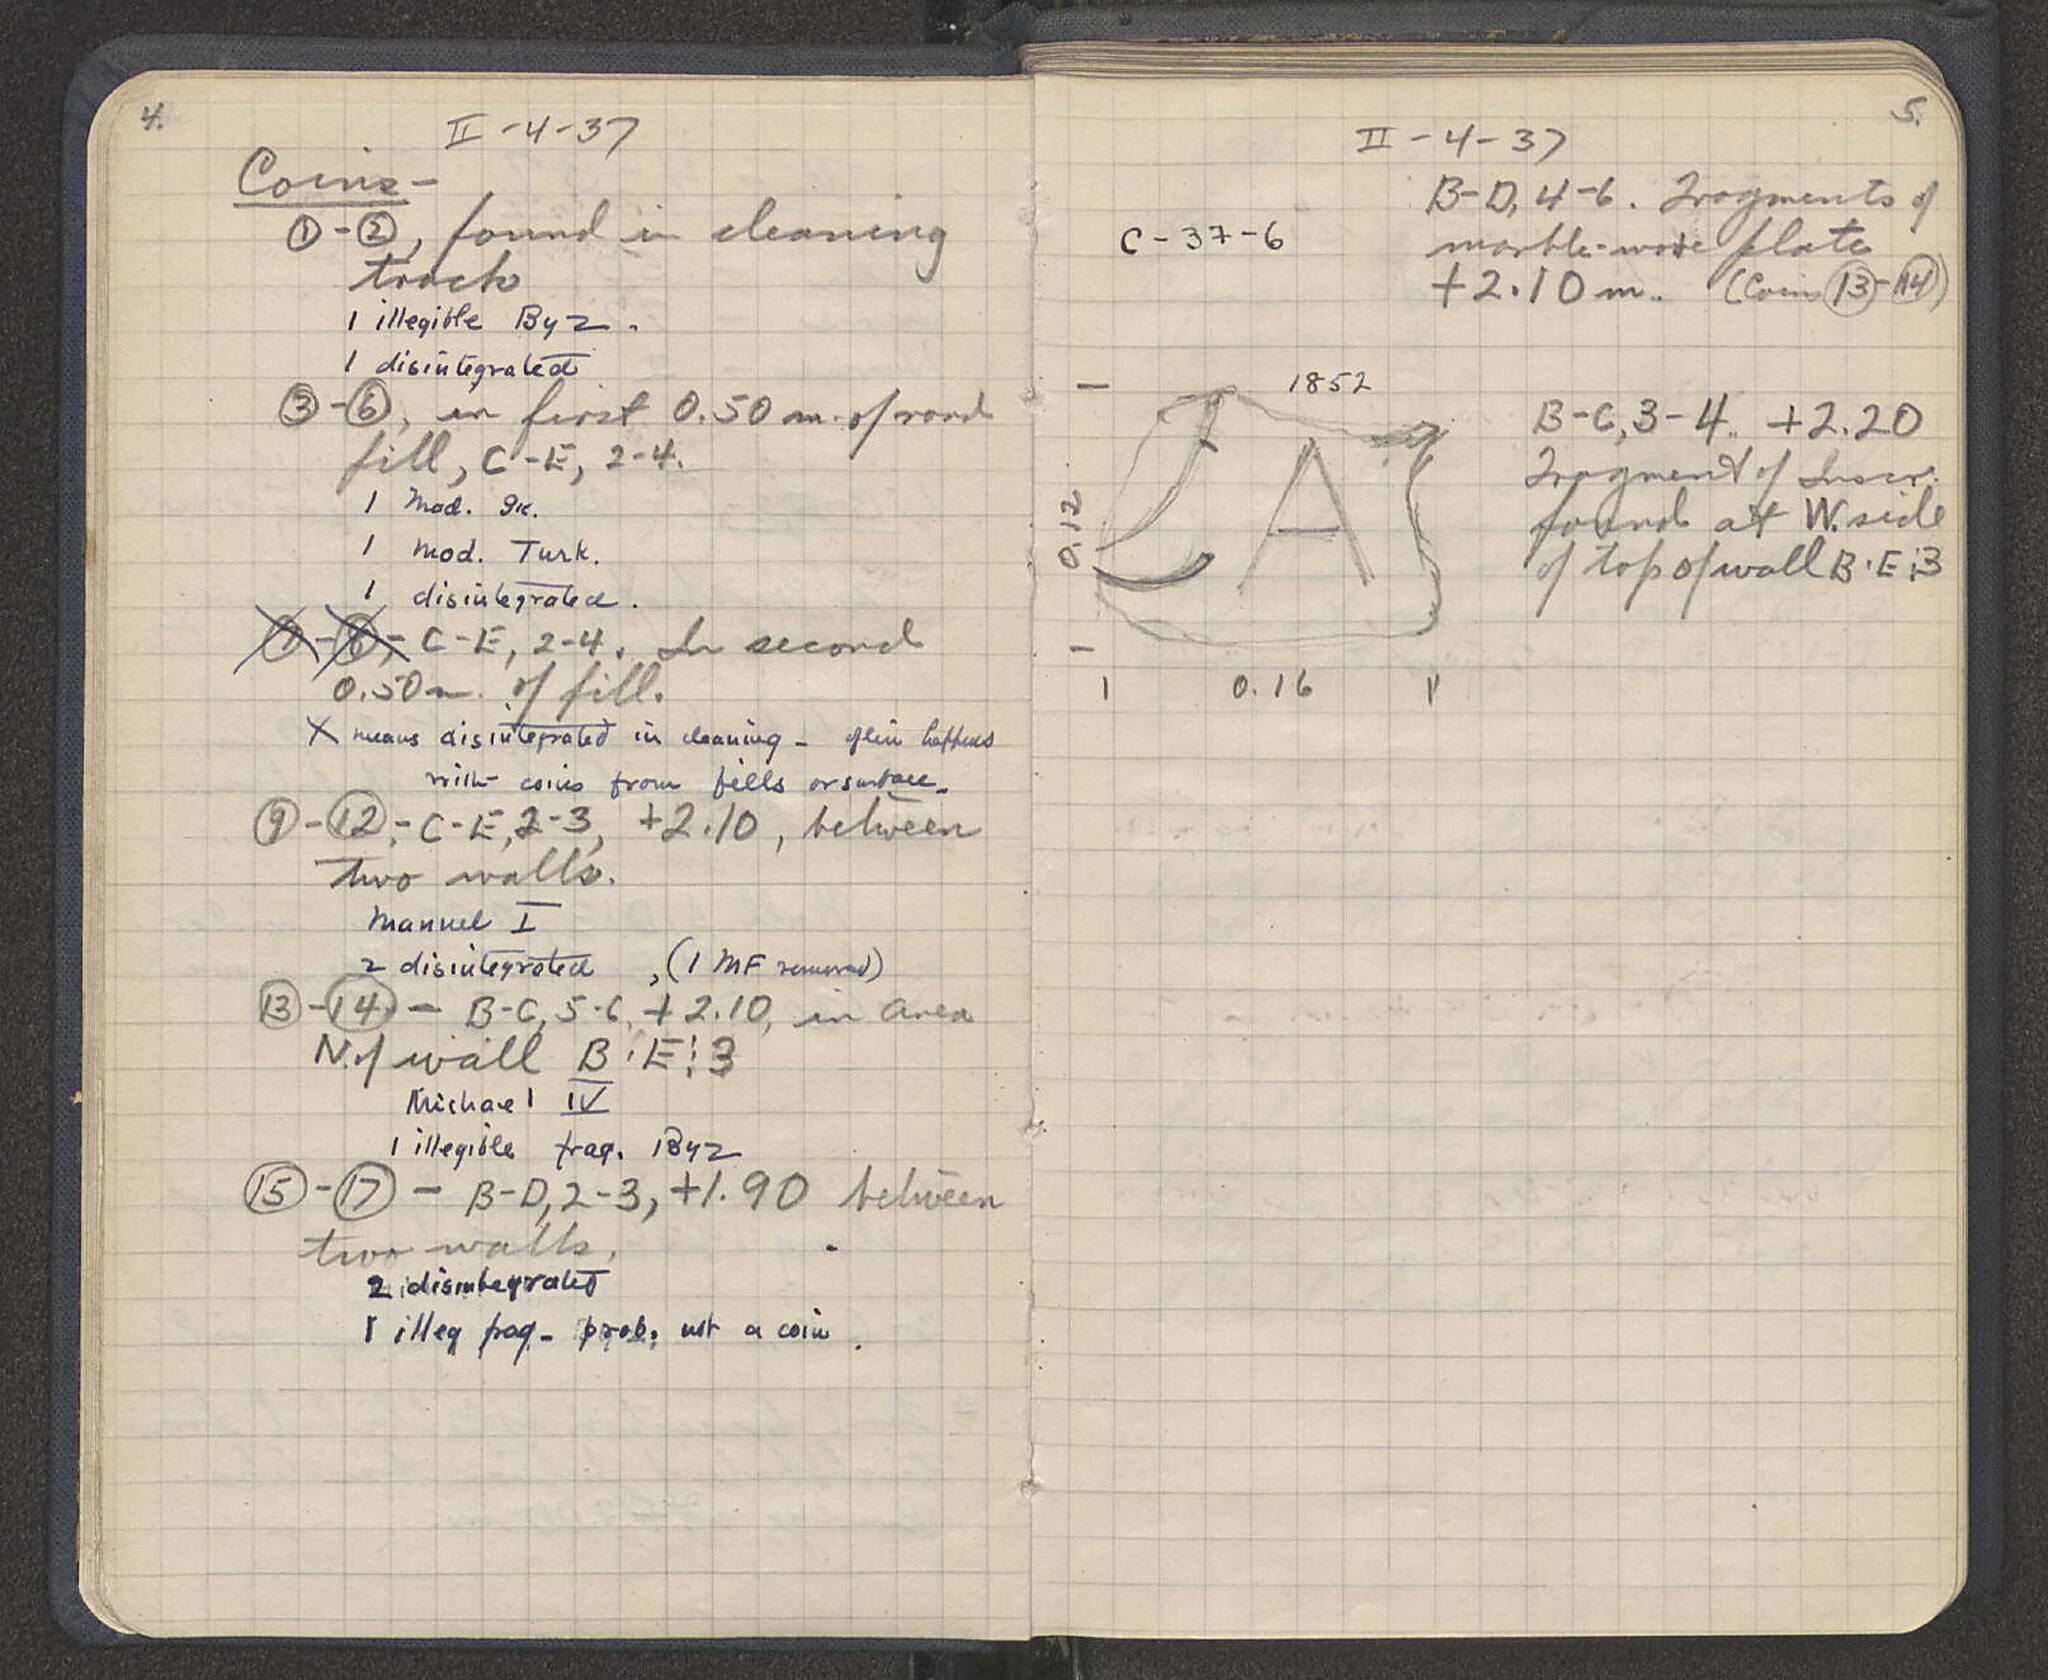 4.
II-4-37
Coins-
①-②, found in cleaning
track
1 illegible Byz.
1 disintegrated
③-⑥, in first 0.50 m. of road
fill, C-E, 2-4.
1 Mod. gk.
1 Mod. Turk.
1 disintegrated.
⑦-⑧- C-E, 2-4. In second
0.50 m. of fill.
X means disintegrated in cleaning - often happens
with coins from fills or surface.
⑨-⑫- C-E, 2-3, +2.10, between
two walls.
Manuel I
2 disintegrated, (1 MF removed)
⑬-⑭ - B-C, 5-6, +2.10, in area
N. of wall B·E:3
Michael IV
1 illegible frag. Byz
⑮-⑰ - B-D, 2-3, +1.90 between
two walls.
2 disintegrated
1 illeg frag - prob. not a coin.
5.
II-4-37
C-37-6
B-D, 4-6. Fragments of
marble-ware plate
+2.10 m. (Coins ⑬-⑭)
1852
A
0.12
0.16
B-C, 3-4. +2.20
Fragment of Inscr.
found at W. side
of top of wall B·E:3